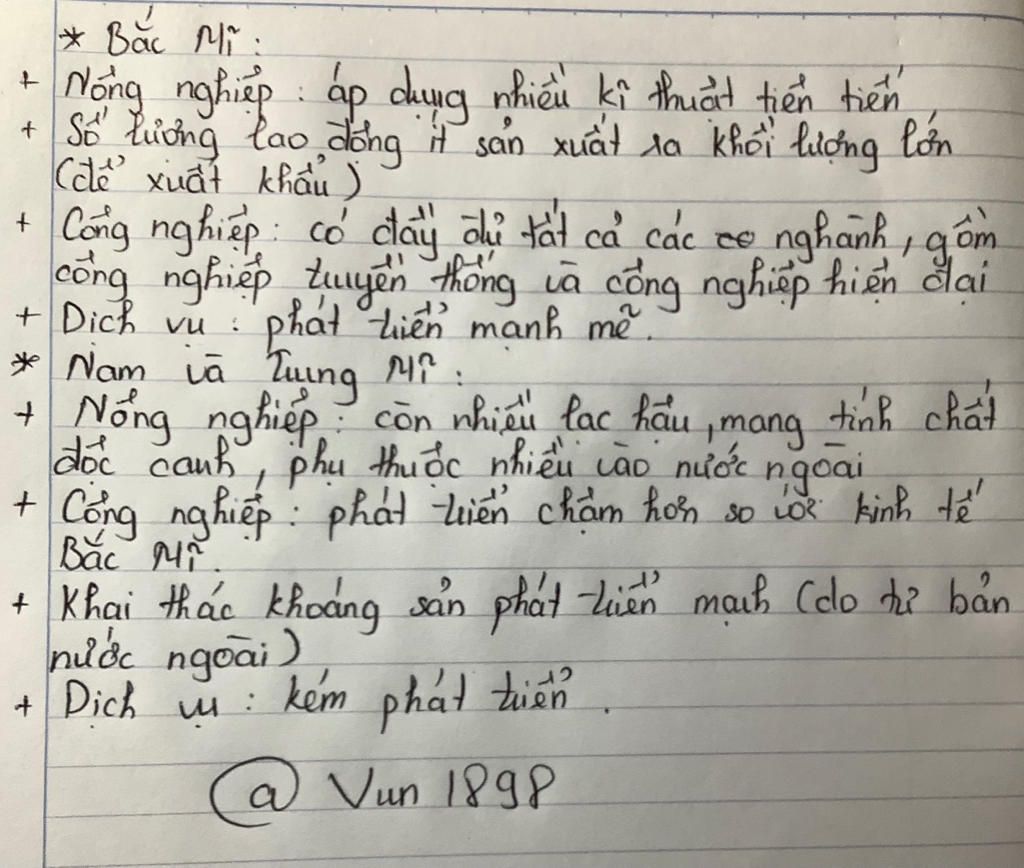 * Bắc Mĩ :
+ Nông nghiệp : áp dụng nhiều kĩ thuật tiên tiến
+ Số lượng lao động ít sản xuất ra khối lượng lớn
(để xuất khẩu)
+ Công nghiệp : có đầy đủ tất cả các nghành, gồm
công nghiệp truyền thống và công nghiệp hiện đại
+ Dịch vụ : phát triển mạnh mẽ.
* Nam và Trung Mĩ :
+ Nông nghiệp : còn nhiều lạc hậu, mang tính chất
độc canh, phụ thuộc nhiều vào nước ngoài
+ Công nghiệp : phát triển chậm hơn so với kinh tế
Bắc Mĩ.
+ Khai thác khoáng sản phát triển mạnh (do tư bản
nước ngoài)
+ Dịch vụ : kém phát triển .
@ Vun 1898